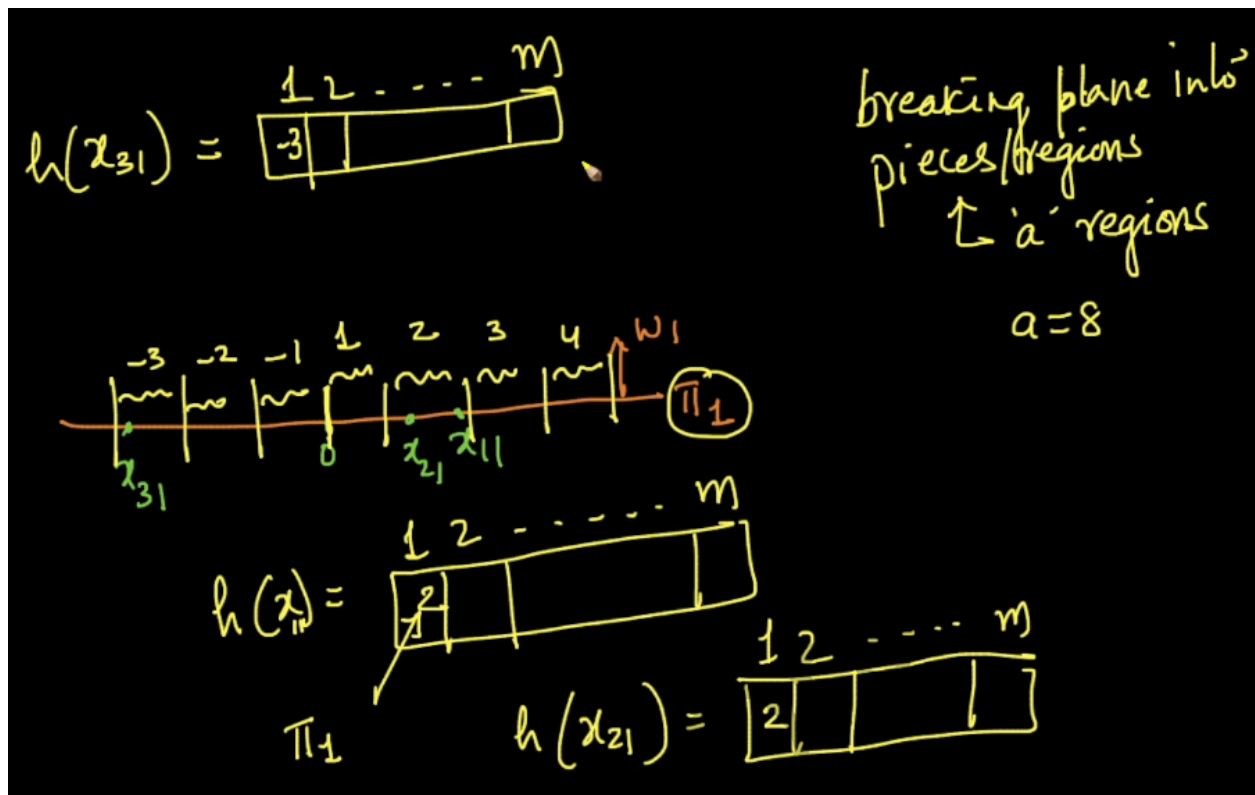 1 2 . - - - - m
h(x₃₁) = -3
breaking plane into
pieces/regions
↳ 'a' regions
a=8
-3 -2 -1 1 2 3 4 W₁
π₁
x₃₁ 0 x₂₁ x₁₁
1 2 - - - - - m
h(x₁₁) = 2
π₁
1 2 - - - - m
h(x₂₁) = 2